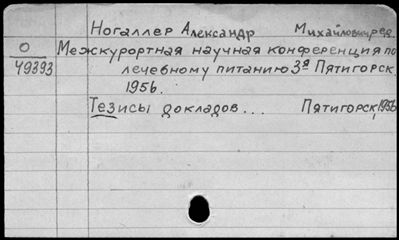 Ногаллер Александр Михайлович, ред.
О
49393
Межкурортная научная конференция по
лечебному питанию 3я Пятигорск.
1956.
Тезисы докладов... Пятигорск, 1956